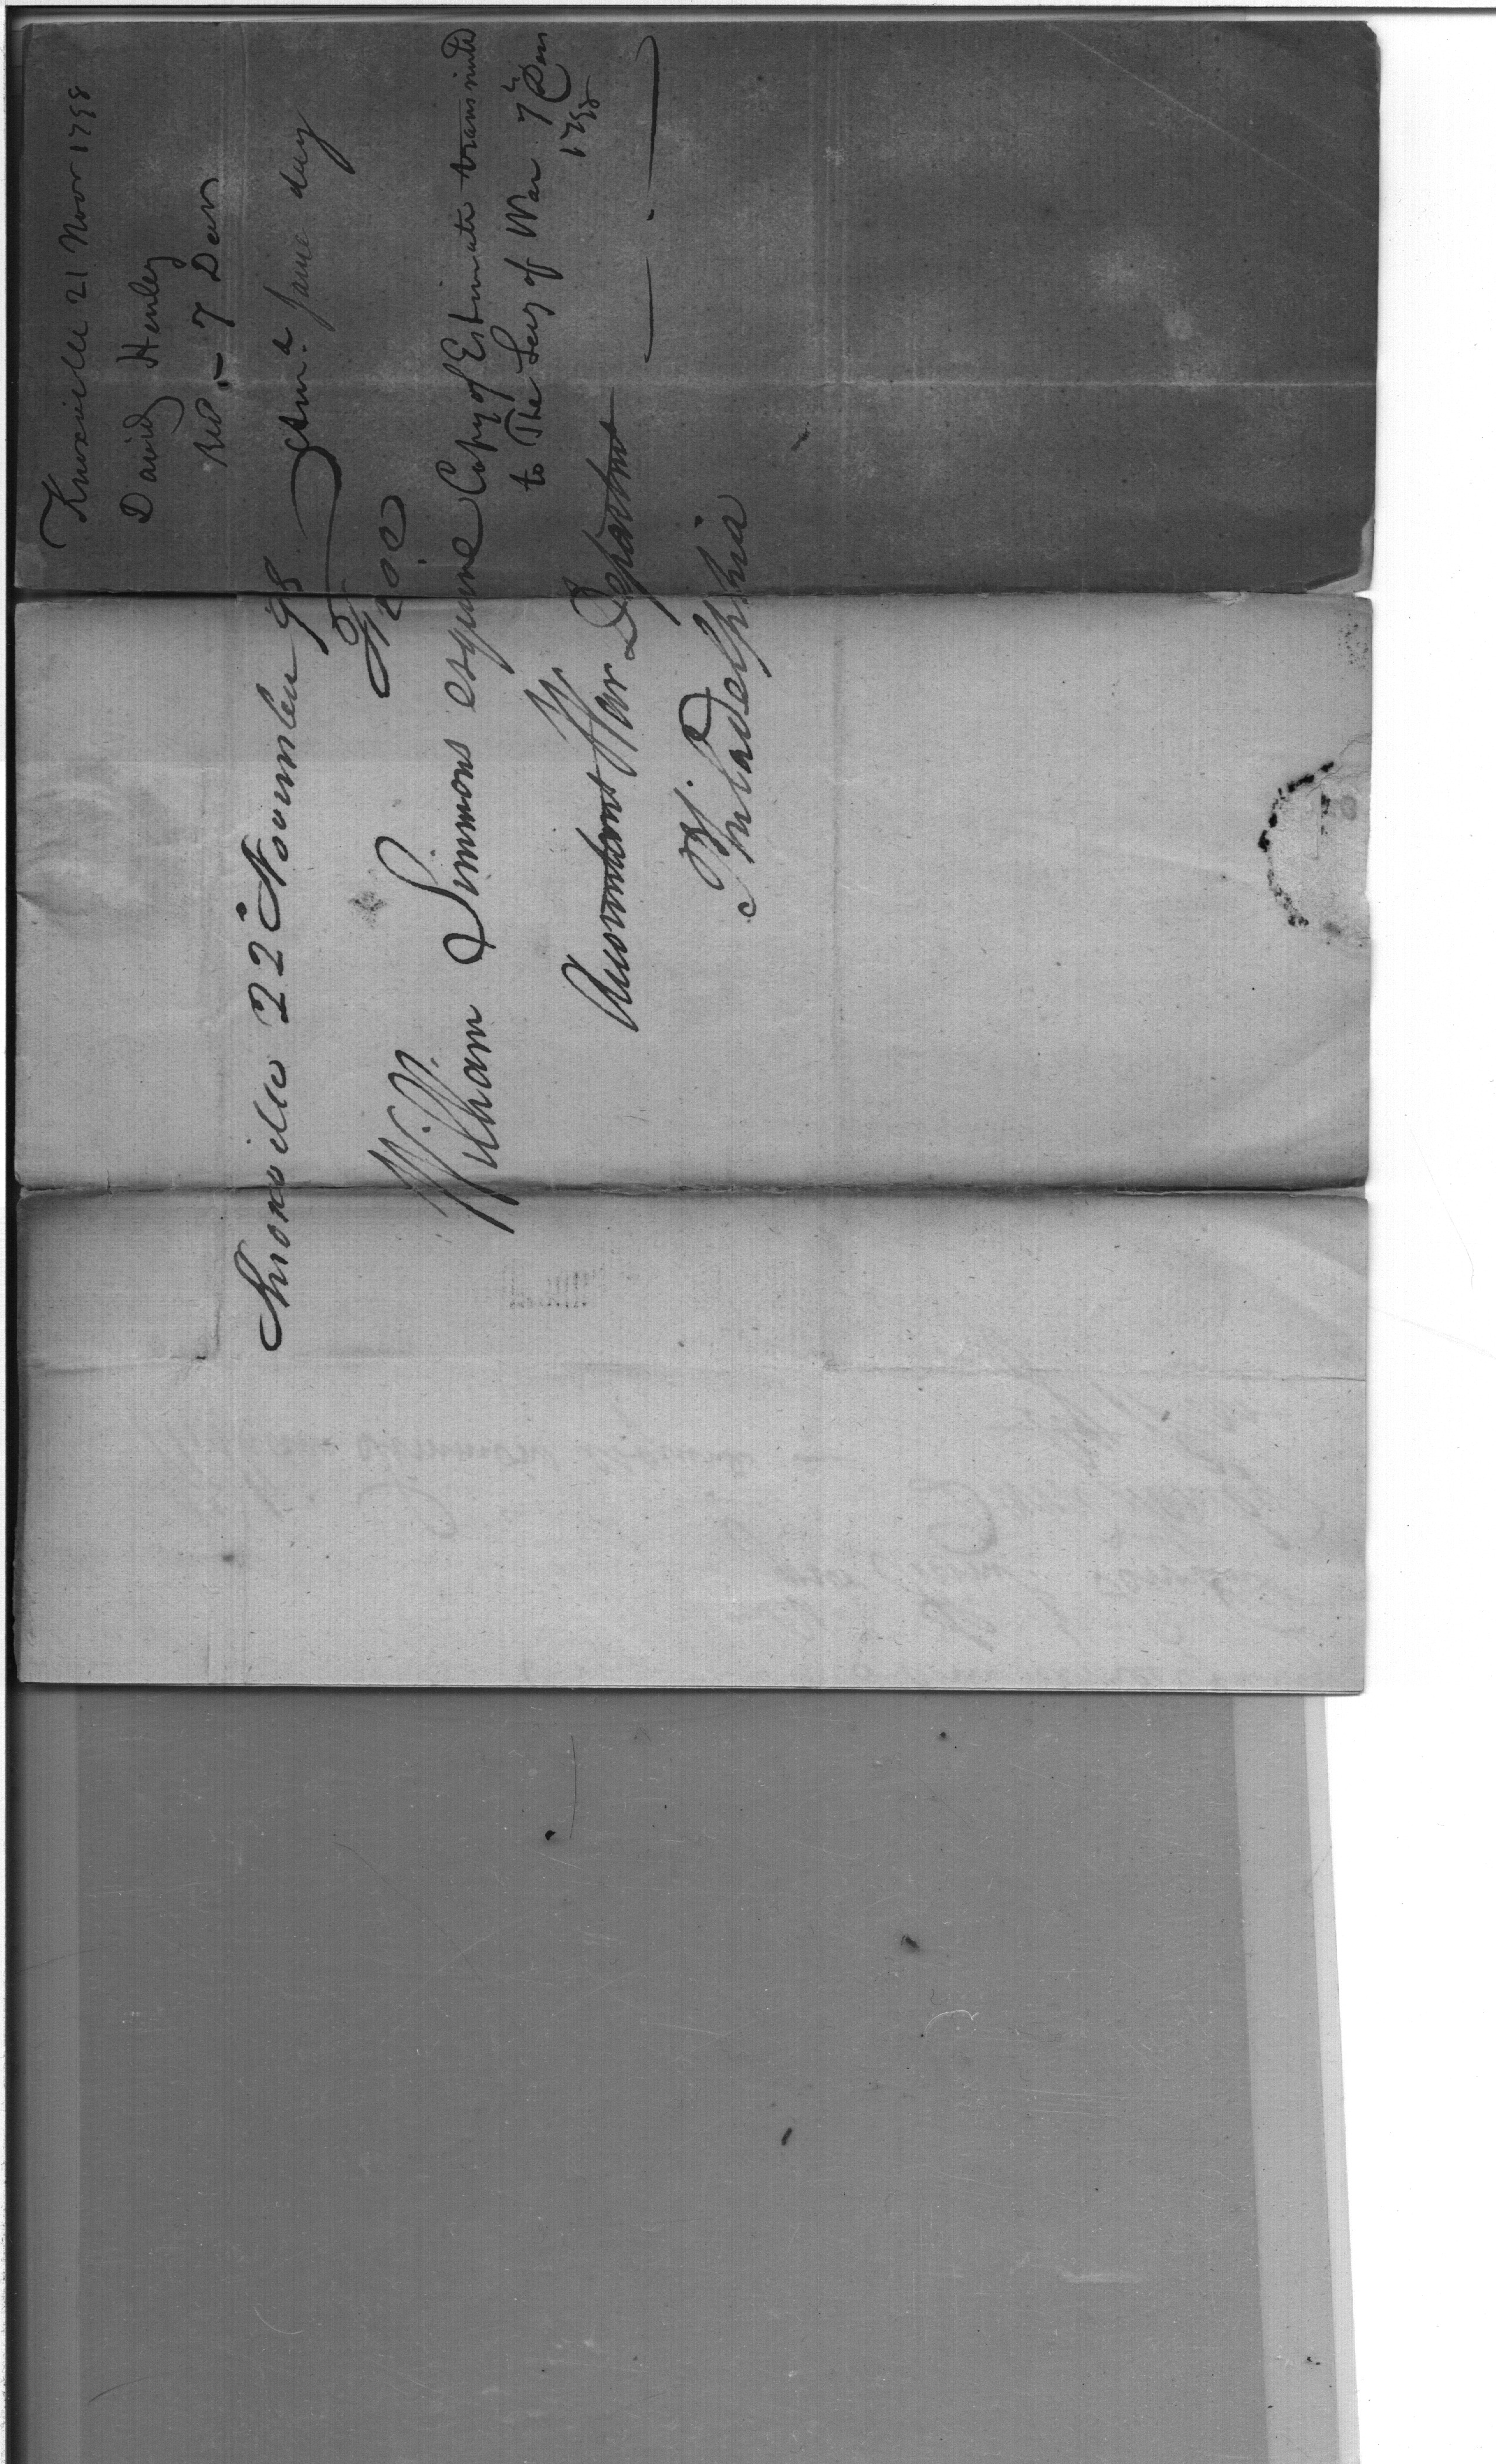 Knoxville 21 Novr 1798
David Henley
Recd. - 7 Decr
Ansd. same day
Copy of Estimate transmitted
to The Secy of War 7th Decr
1798
Knoxville 22 November 98
Free
William Simmons esquire
Accountant War Departmt
Philadelphia